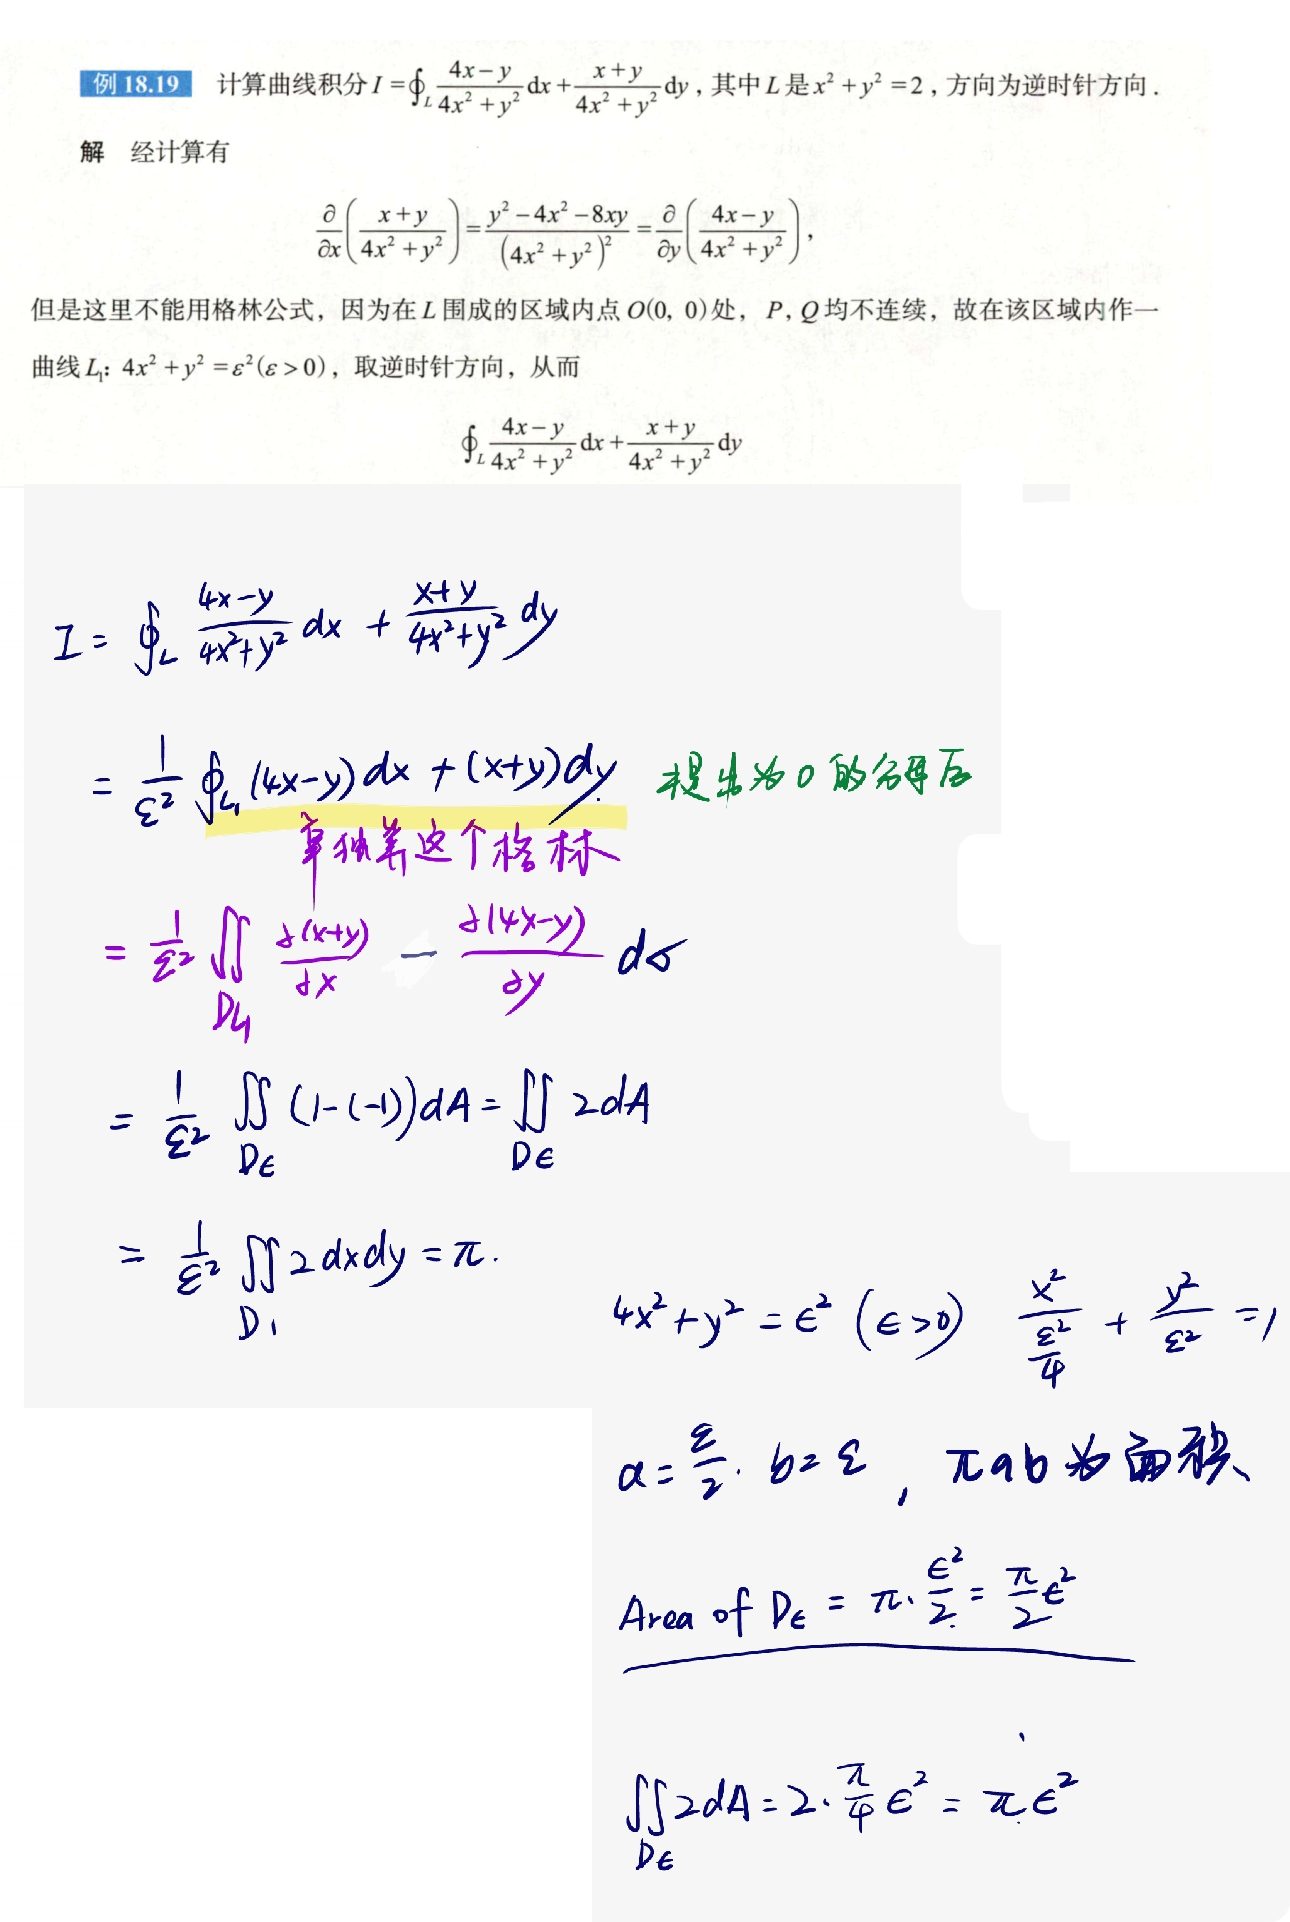 例 18.19 计算曲线积分 I = ∮_L (4x−y)/(4x²+y²) dx + (x+y)/(4x²+y²) dy , 其中 L 是 x² + y² = 2 , 方向为逆时针方向 .
解 经计算有
∂/∂x ( (x+y)/(4x²+y²) ) = (y²−4x²−8xy)/(4x²+y²)² = ∂/∂y ( (4x−y)/(4x²+y²) ) ,
但是这里不能用格林公式，因为在 L 围成的区域内点 O(0, 0)处， P , Q 均不连续，故在该区域内作一
曲线 L₁: 4x² + y² = ε² (ε > 0) ，取逆时针方向，从而
∮_L (4x−y)/(4x²+y²) dx + (x+y)/(4x²+y²) dy
I = ∮_L (4x−y)/(4x²+y²) dx + (x+y)/(4x²+y²) dy
= 1/ε² ∮_L₁ (4x−y)dx + (x+y)dy 提出为0的分母后
单独算这个格林
= 1/ε² ∬_DL₁ ∂(x+y)/∂x − ∂(4x−y)/∂y dσ
= 1/ε² ∬_Dϵ (1−(−1))dA = ∬_Dϵ 2dA
= 1/ε² ∬_D₁ 2dxdy = π.
4x²+y² = ϵ² (ϵ>0) x²/(ε²/4) + y²/ε² = 1
a = ε/2 . b = ε , πab为面积
Area of Dϵ = π. ϵ²/2 = π/2 ϵ²
∬_Dϵ 2dA = 2·π/4 ϵ² = πϵ²